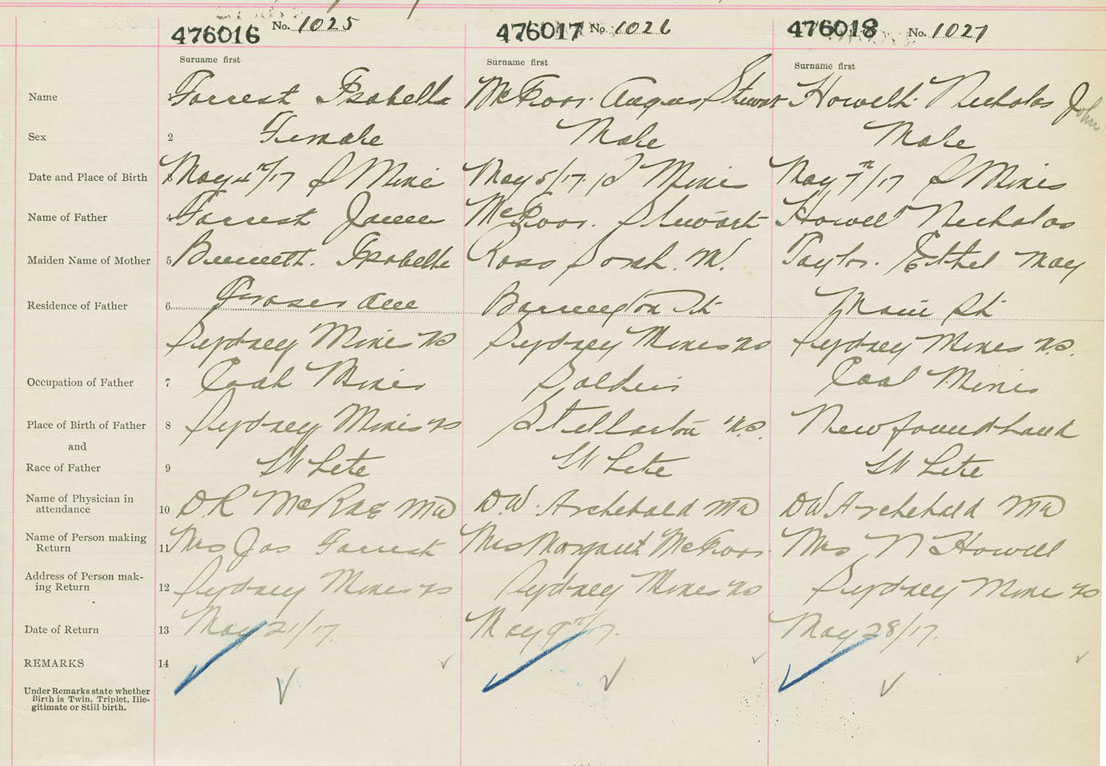 476016 No. 1025 476017 No. 1026 476018 No. 1027
Surname first Surname first Surname first
Name 1 Forrest Isabella Angus Stewart Howell Nicholas John
Sex 2 Female Male Male
Date and Place of Birth 3 May 4th/17 S Mines May 5/17 S Mines May 7th/17 S Mines
Name of Father 4 Forrest James Stewart Howell Nicholas
Maiden Name of Mother 5 Isabella Ross Sarah. M. Taylor. Ethel May
Residence of Father 6 Fraser Ave Barrington St Main St
Sydney Mines NS Sydney Mines NS Sydney Mines N.S.
Occupation of Father 7 Coal Miner Soldier Coal Miner
Place of Birth of Father 8 Sydney Mines NS Stellarton N.S. Newfoundland
and
Race of Father 9 White White White
Name of Physician in
attendance 10 DR McRae MD D.W. Archebald MD DW Archebald MD
Name of Person making
Return 11 Mrs Jas Forrest Mrs Margaret Mrs N Howell
Address of Person mak-
ing Return 12 Sydney Mines NS Sydney Mines NS Sydney Mines NS
Date of Return 13 May 21/17. May 9th/17. May 28/17.
REMARKS 14
Under Remarks state whether
Birth is Twin, Triplet, Ille-
gitimate or Still birth.